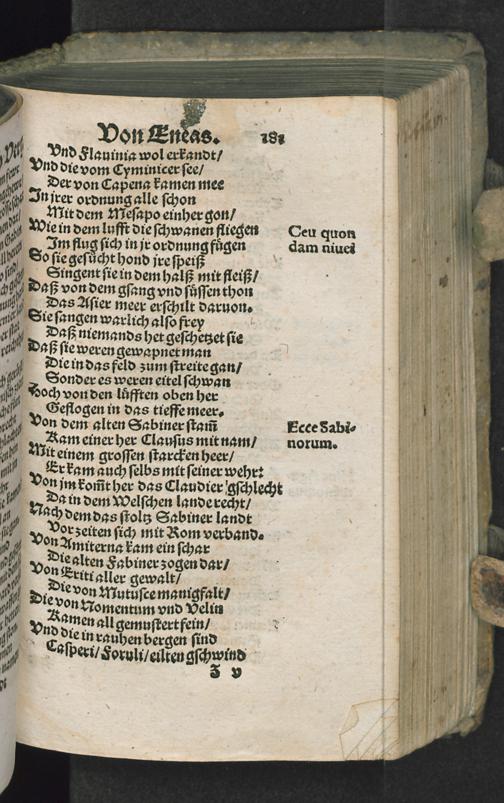 Von Eneas. 181
Vnd Flauinia wol erkandt/
Vnd die vom Cyminicer see/
Der von Capena kamen mee
In jrer ordnung alle schon
Mit dem Mesapo einher gon/
Wie in dem lufft die schwanen fliegen
Im flug sich in jr ordnung fügen
So sie gesücht hond jre speiß
Singent sie in dem halß mit fleiß/
Daß von dem gsang vnd süssen thon
Das Asier meer erschilt daruon.
Sie sangen warlich also frey
Daß niemands het geschetzet sie
Daß sie weren gewapnet man
Die in das feld zum streite gan/
Sonder es weren eitel schwan
Hoch von den lüfften oben her
Geflogen in das tieffe meer.
Von dem alten Sabiner stam̃
Kam einer her Clausus mit nam/
Mit einem grossen starcken heer/
Er kam auch selbs mit seiner wehr:
Von jm kom̃t her das Claudier gschlecht
Da in dem Welschen lande recht/
Nach dem das stoltz Sabiner landt
Vor zeiten sich mit Rom verband.
Von Amiterna kam ein schar
Die alten Fabiner zogen dar/
Von Eriti aller gewalt/
Die von Mutusce manigfalt/
Die von Nomentum vnd Velin
Kamen all gemustert fein/
Vnd die in rauhen bergen sind
Casperi/ Foruli/ eilten gschwind
Z v
Ceu quon
dam niuei
Ecce Sabi-
norum.